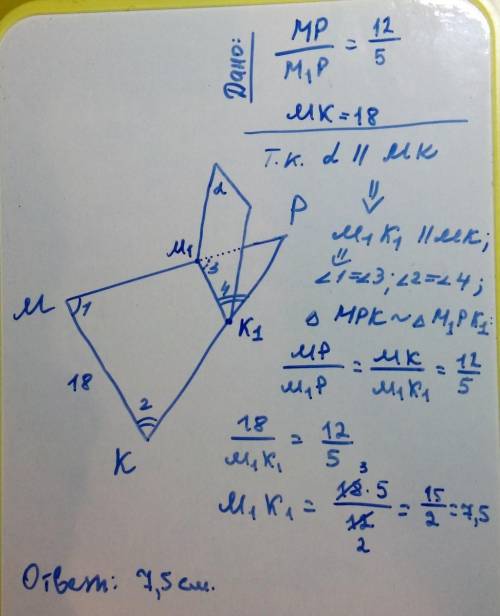 Дано:
MP/M₁P = 12/5
MK = 18
Т.к. α || MK
⇓
M₁K₁ || MK;
⇓
∠1=∠3; ∠2=∠4;
△ MPK ~ △ M₁PK₁.
MP/M₁P = MK/M₁K₁ = 12/5
18/M₁K₁ = 12/5
M₁K₁ = 18·5/12 = 15/2 = 7,5
3
2
α
P
M₁
3
4
M
1
K₁
18
2
K
Ответ: 7,5 см.